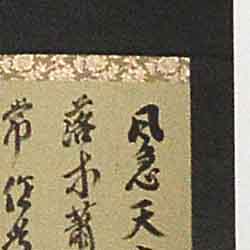 風急天
落木蕭
常作客